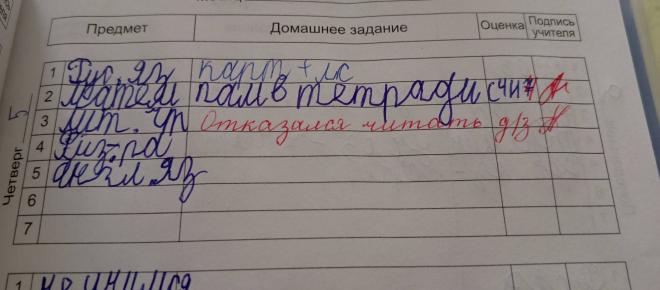 Предмет Домашнее задание Оценка Подпись учителя
Четверг 5
1 Рус. яз карт +
2 матем пам в тетради
3 лит. чт Отказался читать д/з
4 Физ-ра
5 англ. яз
6
7
1